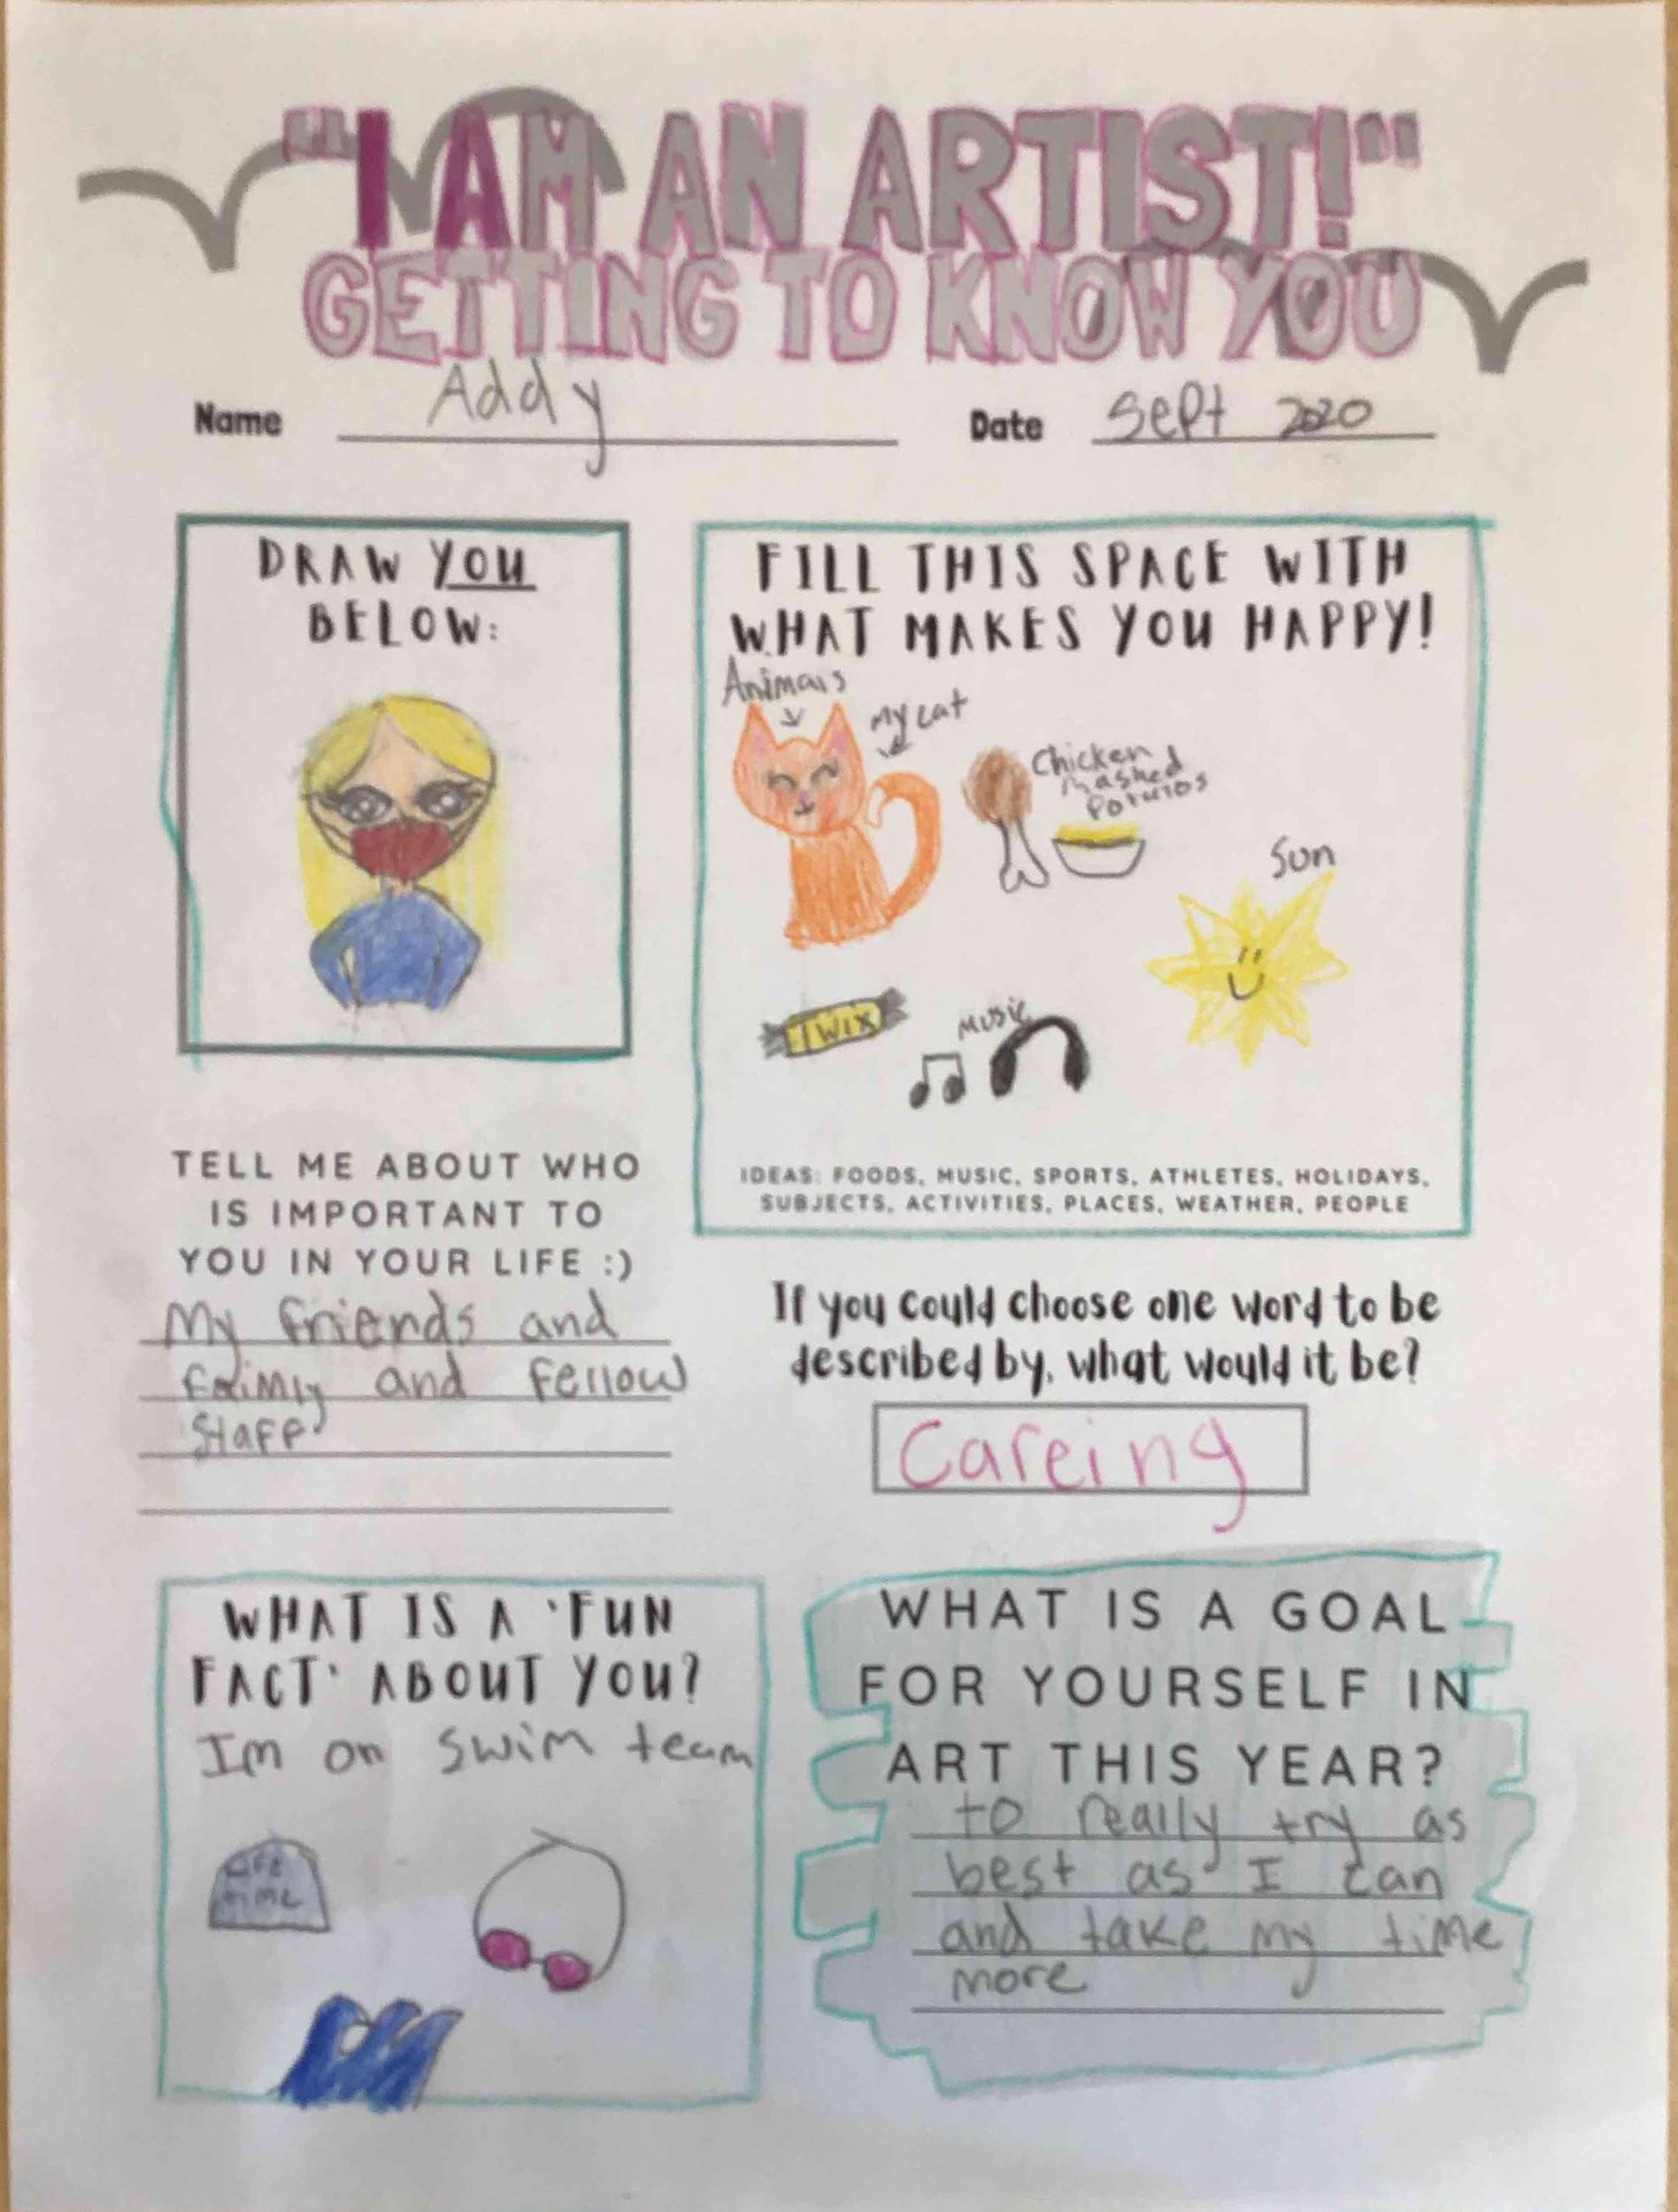 "I AM AN ARTIST!"
GETTING TO KNOW YOU
Name Addy Date Sept 2020
DRAW YOU
BELOW:
FILL THIS SPACE WITH
WHAT MAKES YOU HAPPY!
Animals
My cat
Chicken
mashed
Potatos
Sun
TWIX
Music
IDEAS: FOODS, MUSIC, SPORTS, ATHLETES, HOLIDAYS,
SUBJECTS, ACTIVITIES, PLACES, WEATHER, PEOPLE
TELL ME ABOUT WHO
IS IMPORTANT TO
YOU IN YOUR LIFE :)
My friends and
faimly and fellow
staff
If you could choose one word to be
described by, what would it be?
Careing
WHAT IS A 'FUN
FACT' ABOUT YOU?
Im on swim team
time
WHAT IS A GOAL
FOR YOURSELF IN
ART THIS YEAR?
to really try as
best as I can
and take my time
more